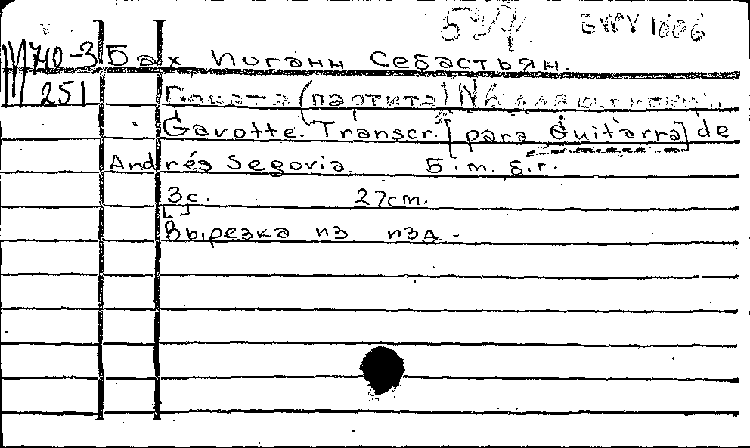 BWV 1006
М 740-3 Бах Иоганн Себастьян.
251 (партита) №6 для
Gavotte. Transcr. [para Guitarra] de
Andrés Segovia. Б.м. б.г.
3с. 27cm.
Вырезка из изд.